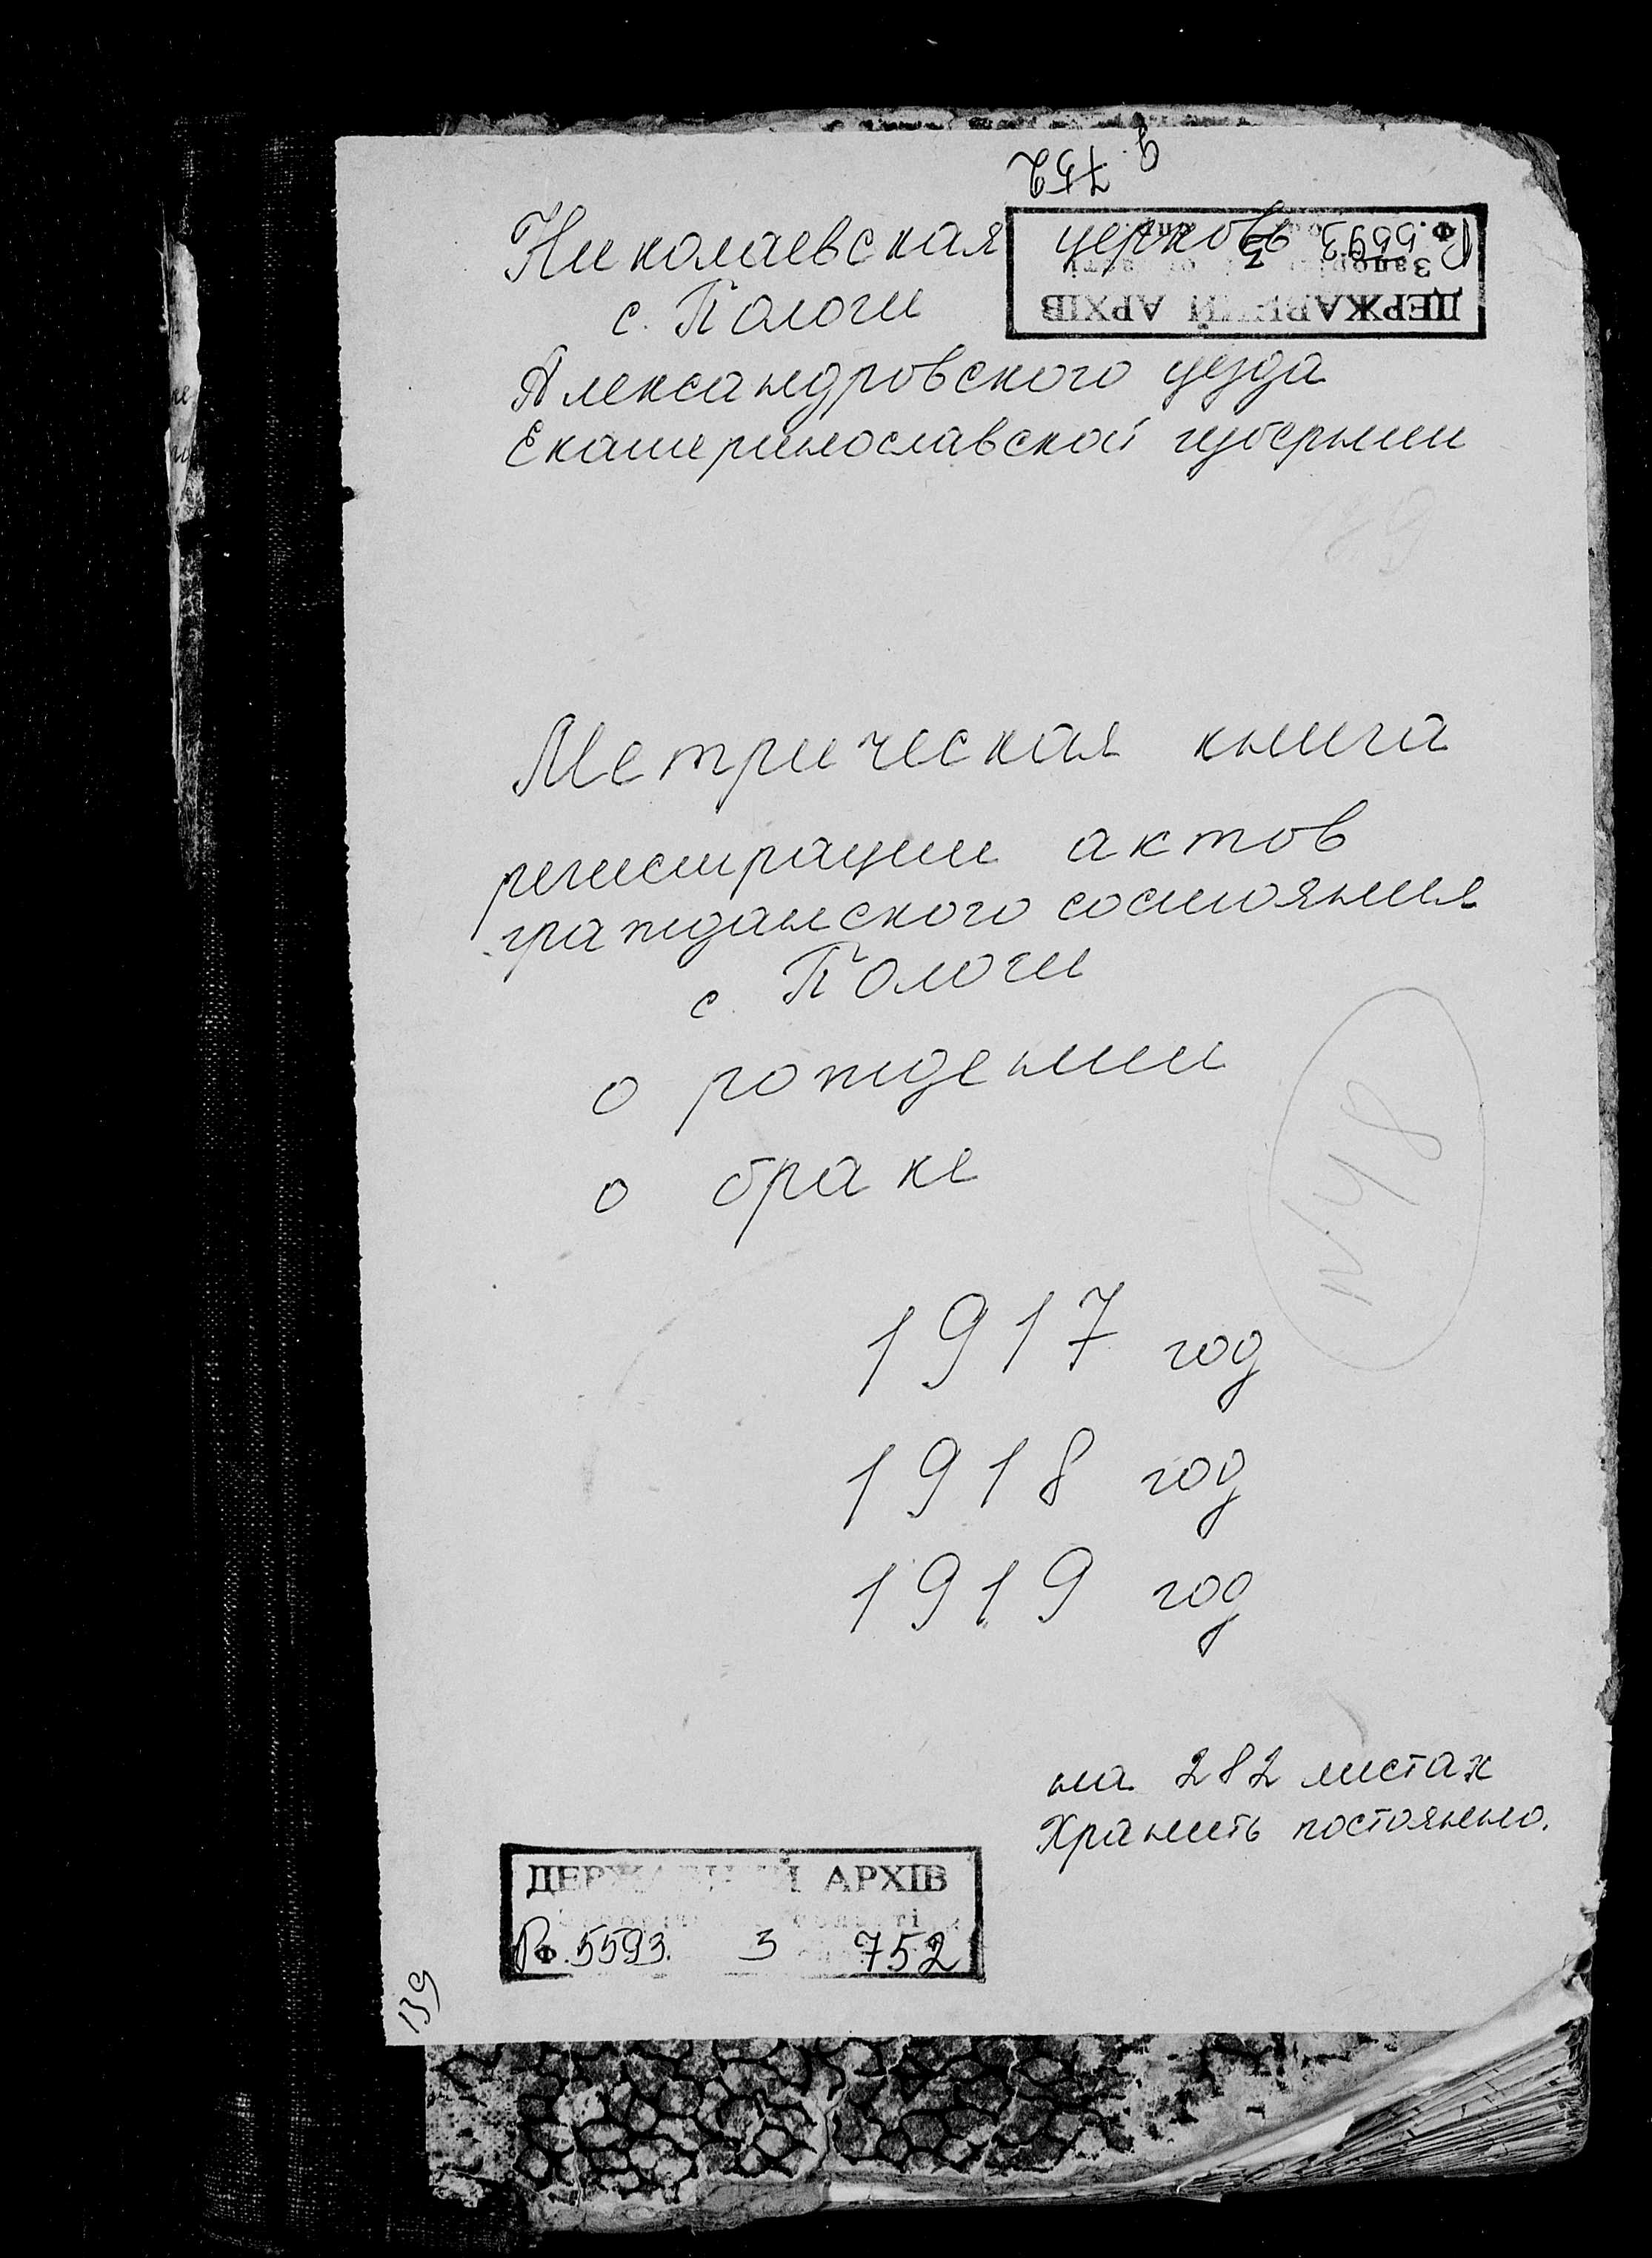 д. 752
Николаевская церковь
с. Пологи
Александровского уезда
Екатеринославской губернии
ДЕРЖАВНИЙ АРХІВ
Запорізької області
Р Ф. 5593 3
Метрическая книга
регистрации актов
гражданского состояния
с. Пологи
о рождении
о браке
N48
1917 год
1918 год
1919 год
на 282 листах
Хранить постоянно.
ДЕРЖАВНИЙ АРХІВ
Запорізької області
РФ. 5593. 3 752
139